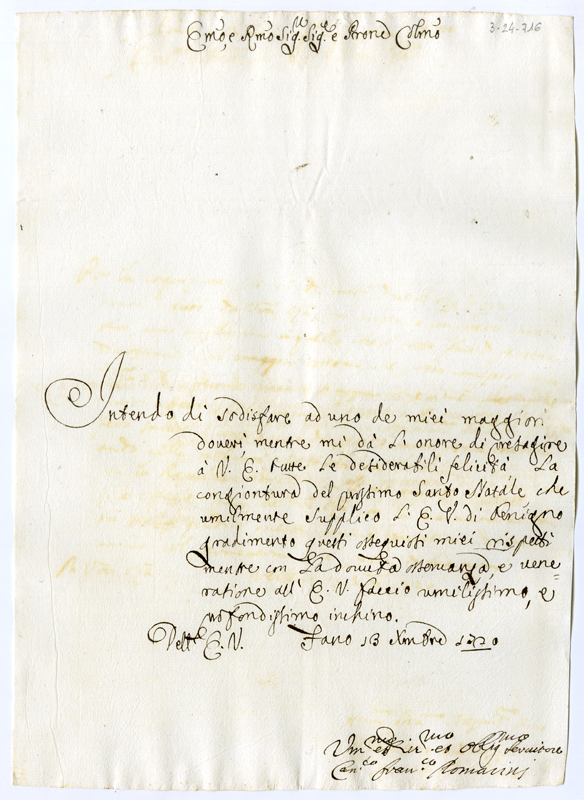 3-24-716
Emo, e Rmo Sigr Sigr e Prone Colmo
Intendo di sodisfare ad uno de miei maggiori
doveri, mentre mi dà l'onore di presagire
à V. E. tutte le desiderabili felicità La
congiontura del prossimo Santo Natale che
umilmente supplico L. E. V. di benigno
gradimento questi ossequiosi miei rispetti
mentre con La dovuta osservanza, e vene=
ratione all' E. V. faccio umilissimo, e
profondissimo inchino.
Dell' E. V. Fano 13 Xmbre 1720
Ummo et obligmo servitore
Canco Franco